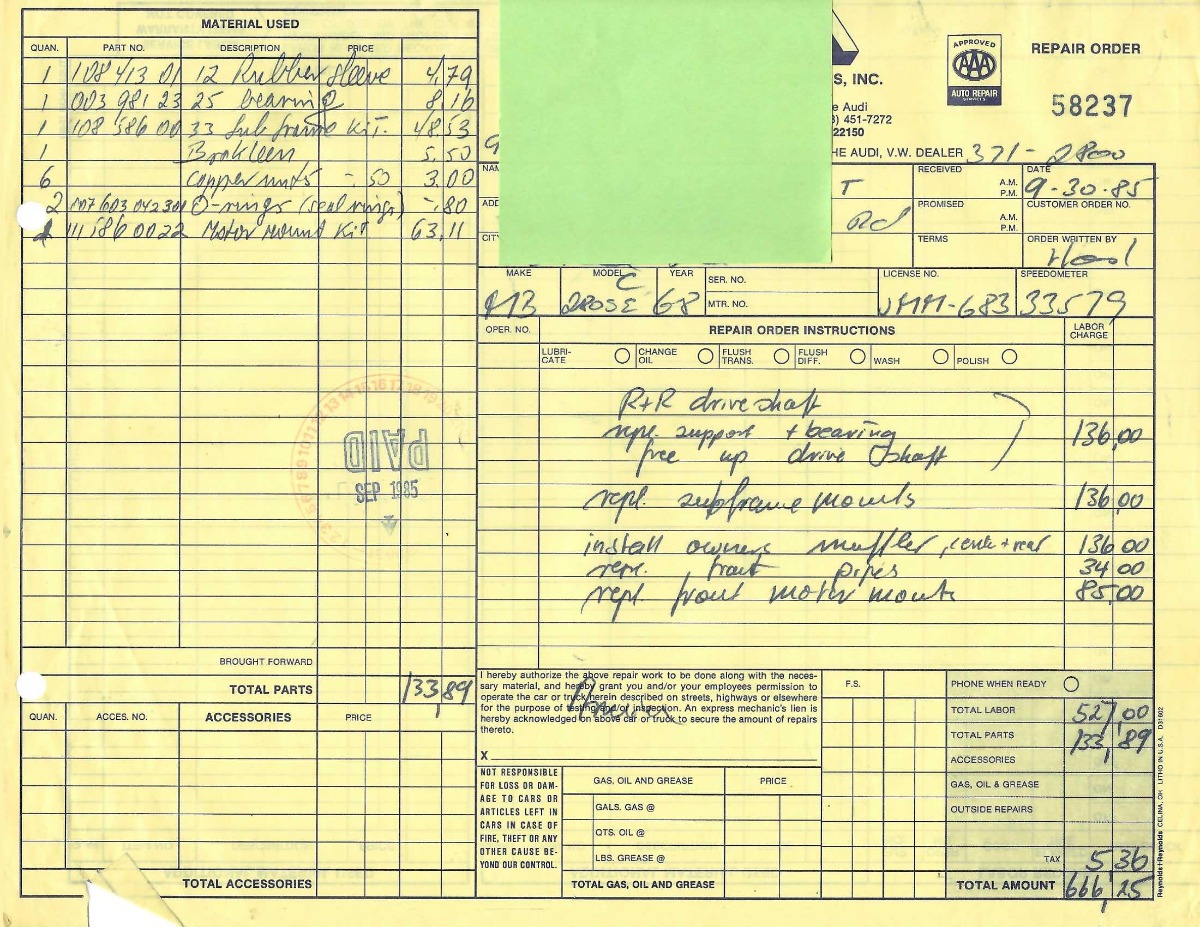 MATERIAL USED
QUAN. PART NO. DESCRIPTION PRICE
1 108 413 01 12 Rubber sleeve 4,79
1 003 981 23 25 bearing 8,16
1 108 586 00 33 Sub frame Kit. 48.53
1 Brakleen 5.50
6 copper nuts -.50 3.00
2 007603 042301 O-rings (seal rings) -.80
111 586 00 22 Motor Mount Kit 63,11
BROUGHT FORWARD
TOTAL PARTS 133,89
QUAN. ACCES. NO. ACCESSORIES PRICE
TOTAL ACCESSORIES
PAID
SEP 1985
S, INC.
APPROVED
AAA
AUTO REPAIR
SERVICES
REPAIR ORDER
58237
e Audi
3) 451-7272
22150
HE AUDI, V.W. DEALER 371-2800
NAM
ADD
CITY
T
Rd
RECEIVED A.M. P.M.
DATE 9-30-85
PROMISED A.M. P.M.
CUSTOMER ORDER NO.
TERMS
ORDER WRITTEN BY
MAKE MODEL YEAR SER. NO. LICENSE NO. SPEEDOMETER
MB 280SE C 68 MTR. NO. JMM-683 33579
OPER. NO. REPAIR ORDER INSTRUCTIONS LABOR CHARGE
LUBRI-CATE CHANGE OIL FLUSH TRANS. FLUSH DIFF. WASH POLISH
R+R driveshaft
repl. support + bearing 136,00
free up drive shaft
repl. subframe mounts 136,00
install owners muffler, cente + rear 136 00
repl. front pipes 34 00
repl front motor mounts 85,00
I hereby authorize the above repair work to be done along with the neces-
sary material, and hereby grant you and/or your employees permission to
operate the car or truck herein described on streets, highways or elsewhere
for the purpose of testing and/or inspection. An express mechanic's lien is
hereby acknowledged on above car or truck to secure the amount of repairs
thereto.
X
NOT RESPONSIBLE
FOR LOSS OR DAM-
AGE TO CARS OR
ARTICLES LEFT IN
CARS IN CASE OF
FIRE, THEFT OR ANY
OTHER CAUSE BE-
YOND OUR CONTROL.
GAS, OIL AND GREASE PRICE
GALS. GAS @
QTS. OIL @
LBS. GREASE @
TOTAL GAS, OIL AND GREASE
F.S.
PHONE WHEN READY
TOTAL LABOR 527,00
TOTAL PARTS 133,89
ACCESSORIES
GAS, OIL & GREASE
OUTSIDE REPAIRS
TAX 5 36
TOTAL AMOUNT 666,25
Reynolds+Reynolds CELINA, OH LITHO IN U.S.A. D31602